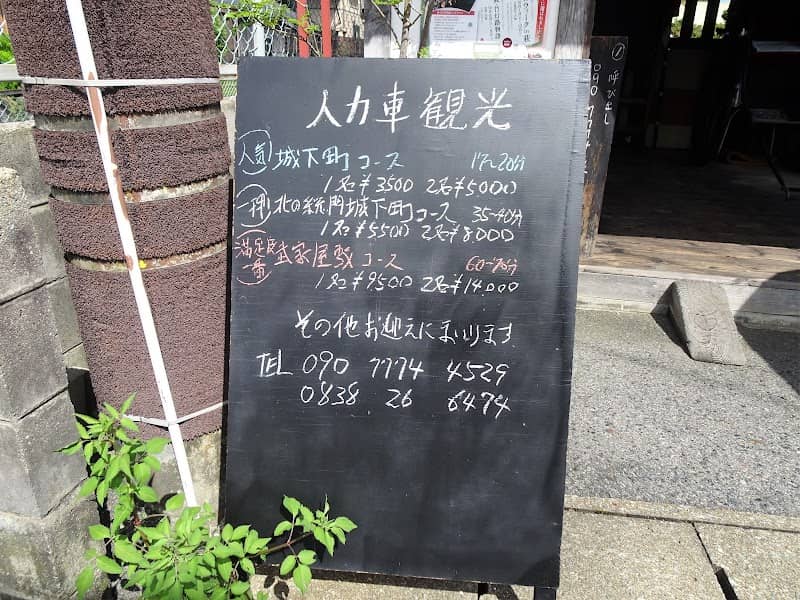 人力車観光
人気 城下町コース 17~20分
1名¥3500 2名¥5000
一押し 北の総門城下町コース 35-40分
1名¥5500 2名¥8,000
満足度一番 武家屋敷コース 60~70分
1名¥9500 2名¥14,000
その他お迎えにまいります
TEL 090 7774 4529
0838 26 6474
呼び出し
090